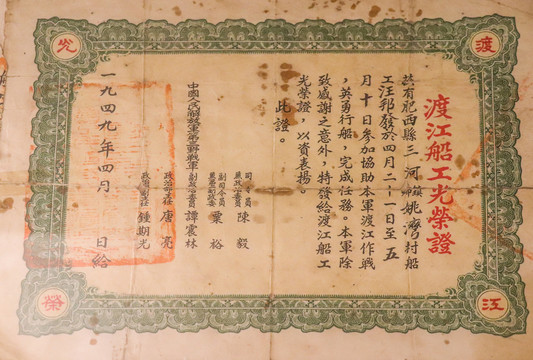 渡江船工光榮證
茲有肥西縣三河鎮姚灣村船
工汪邦發於四月二十一日至五
月十日參加協助本軍渡江作戰
，英勇行船，完成任務。本軍除
致感謝之意外，特發給渡江船工
光榮證，以資表揚。
此證。
中國人民解放軍第三野戰軍
司令員
兼政治委員 陳毅
副司令員 粟裕
副政治委員 譚震林
政治部主任 唐亮
政治部副主任 鍾期光
一九四九年四月 日給
光
渡
榮
江